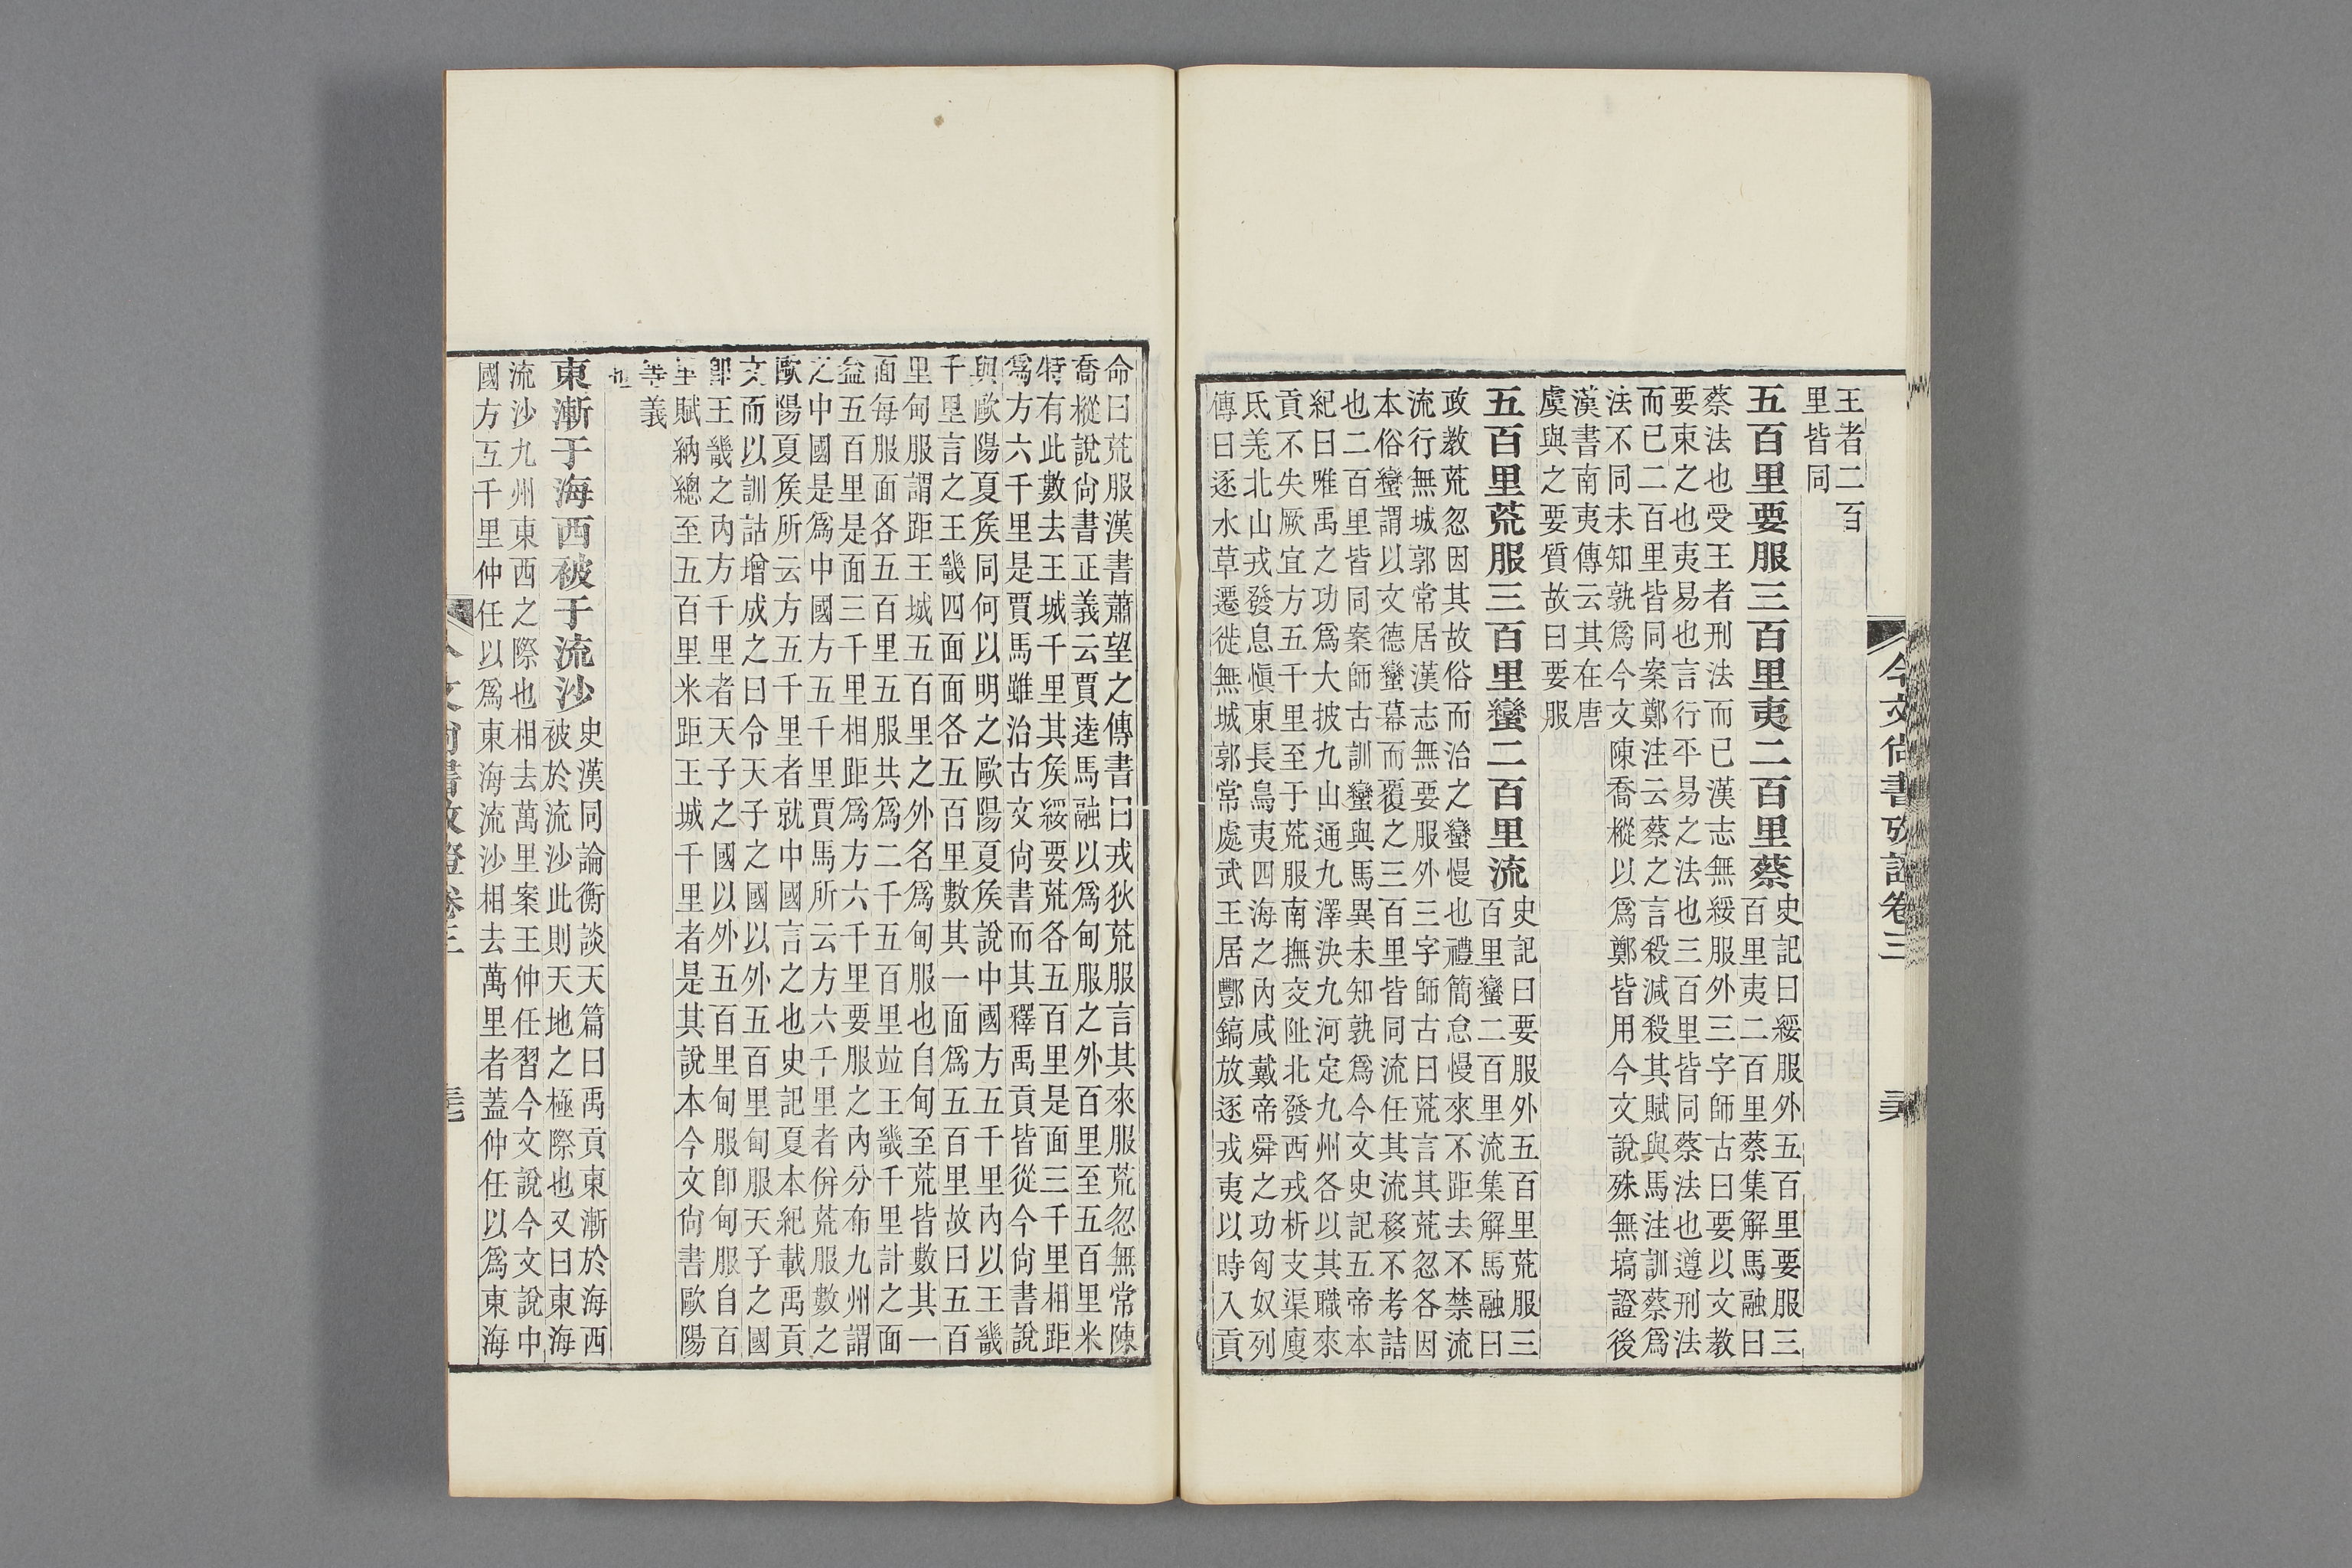 今文尚書攷證卷三
王者二百
里皆同
五百里要服三百里夷二百里蔡史記曰綏服外五百里要服三
百里夷二百里蔡集解馬融曰
蔡法也受王者刑法而已漢志無綏服外三字師古曰要以文教
要束之也夷易也言行平易之法也三百里皆同蔡法也遵刑法
而已二百里皆同案鄭注云蔡之言殺減殺其賦與馬注訓蔡爲
法不同未知孰爲今文陳喬樅以爲鄭皆用今文說殊無塙證後
漢書南夷傳云其在唐
虞與之要質故曰要服
五百里荒服三百里蠻二百里流史記曰要服外五百里荒服三
百里蠻二百里流集解馬融曰
政教荒忽因其故俗而治之蠻慢也禮簡怠慢來不距去不禁流
流行無城郭常居漢志無要服外三字師古曰荒言其荒忽各因
本俗蠻謂以文德蠻幕而覆之三百里皆同流任其流移不考詰
也二百里皆同案師古訓蠻與馬異未知孰爲今文史記五帝本
紀曰唯禹之功爲大披九山通九澤決九河定九州各以其職來
貢不失厥宜方五千里至于荒服南撫交阯北發西戎析支渠廋
氐羌北山戎發息愼東長鳥夷四海之內咸戴帝舜之功匈奴列
傳曰逐水草遷徙無城郭常處武王居酆鎬放逐戎夷以時入貢
命曰荒服漢書蕭望之傳書曰戎狄荒服言其來服荒忽無常陳
喬樅說尙書正義云賈逵馬融以爲甸服之外百里至五百里米
特有此數去王城千里其矦綏要荒各五百里是面三千里相距
爲方六千里是賈馬雖治古文尙書而其釋禹貢皆從今尙書說
與歐陽夏矦同何以明之歐陽夏矦說中國方五千里內以王畿
千里言之王畿四面面各五百里數其一面爲五百里故曰五百
里甸服謂距王城五百里之外名爲甸服也自甸至荒皆數其一
面每服面各五百里五服共爲二千五百里竝王畿千里計之面
益五百里是面三千里相距爲方六千里要服之內分布九州謂
之中國是爲中國方五千里賈馬所云方六千里者併荒服數之
歐陽夏矦所云方五千里者就中國言之也史記夏本紀載禹貢
文而以訓詁增成之曰令天子之國以外五百里甸服天子之國
卽王畿之內方千里者天子之國以外五百里甸服卽甸服自百
里賦納總至五百里米距王城千里者是其說本今文尙書歐陽
等義
也
東漸于海西被于流沙史漢同論衡談天篇曰禹貢東漸於海西
被於流沙此則天地之極際也又曰東海
流沙九州東西之際也相去萬里案王仲任習今文說今文說中
國方五千里仲任以爲東海流沙相去萬里者蓋仲任以爲東海